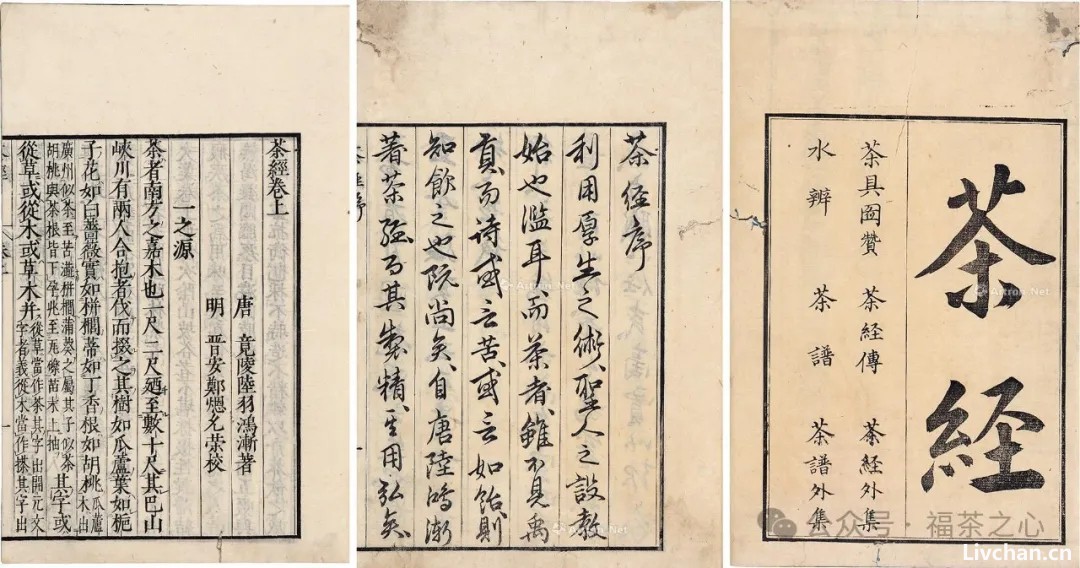 茶経
茶具圖贊 茶経傳 茶経外集
水辨 茶譜 茶譜外集
茶経序
利用厚生之術聖人之設教
始也濫耳而茶者雖不見禹
貢而诗或云苦或云如飴則
知飲之也既尚矣自唐陸鴻漸
著茶経而其製精其用弘矣
茶經卷上
一之源
唐 竟陵陸羽鴻漸著
明 晋安鄭熜允榮校
茶者南方之嘉木也一尺二尺廼至數十尺其巴山
峽川有兩人合抱者伐而掇之其樹如瓜蘆葉如梔
子花如白薔薇實如栟櫚蒂如丁香根如胡桃瓜蘆木出
廣州似茶至苦澁栟櫚蒲葵之屬其子似茶
胡桃與茶根皆下孕兆至瓦礫苗木上抽其字或
從草或從木或草木并從草當作茶其字出開元文
字者義從木當作搽其字出
公众号·福茶之心
Livchan.cn